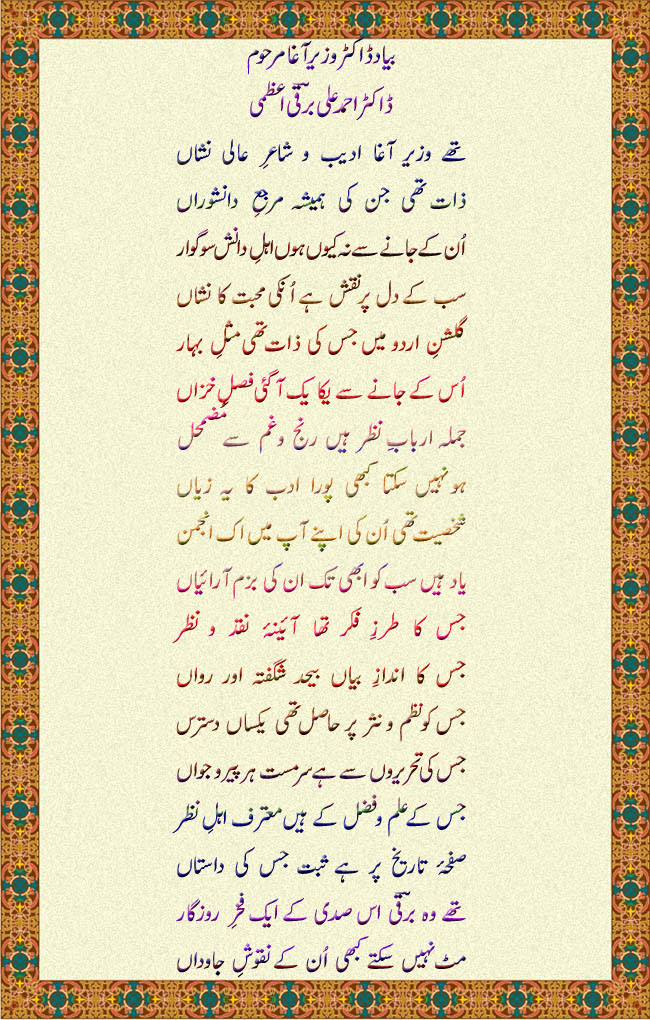 بیاد ڈاکٹر وزیر آغا مرحوم
ڈاکٹر احمد علی برقیؔ اعظمی
تھے وزیر آغا ادیب و شاعرِ عالی نشاں
ذات تھی جن کی ہمیشہ مرجعِ دانشوراں
اُن کے جانے سے نہ کیوں ہوں اہلِ دانش سوگوار
سب کے دل پر نقش ہے اُنکی محبت کا نشاں
گلشنِ اردو میں جس کی ذات تھی مثلِ بہار
اُس کے جانے سے یکایک آگئی فصلِ خزاں
جملہ اربابِ نظر ہیں رنج و غم سے مُضمحل
ہو نہیں سکتا کبھی پورا ادب کا یہ زیاں
شخصیت تھی اُن کی اپنے آپ میں اک انجمن
یاد ہیں سب کو ابھی تک ان کی بزم آرائیاں
جس کا طرزِ فکر تھا آئینۂ نقد و نظر
جس کا اندازِ بیاں بیحد شگفتہ اور رواں
جس کو نظم و نثر پر حاصل تھی یکساں دسترس
جس کی تحریروں سے ہے سرمست ہر پیر و جواں
جس کے علم و فضل کے ہیں معترف اہلِ نظر
صفحۂ تاریخ پر ہے ثبت جس کی داستاں
تھے وہ برقیؔ اس صدی کے ایک فخرِ روزگار
مٹ نہیں سکتے کبھی اُن کے نقوشِ جاوداں